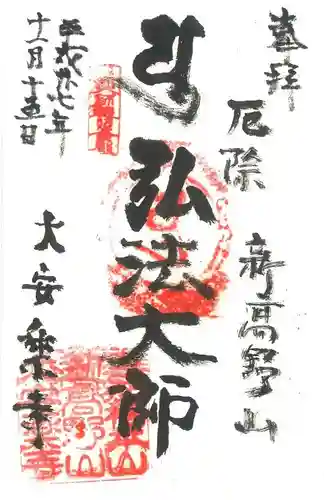 奉拝
厄除
新高野山
弘法大師
平成廿七年
十一月十五日
大安楽寺
新高野山